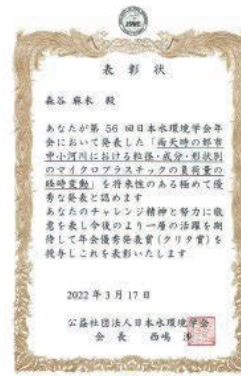 JSWE
表彰状
森谷 麻未 殿
あなたが第 56 回日本水環境学会年
会において発表した「雨天時の都市
中小河川における粒径・成分・形状別
のマイクロプラスチックの負荷量の
経時変動」を将来性のある極めて優
秀な発表と認めます
あなたのチャレンジ精神と努力に敬
意を表し今後のより一層の活躍を期
待して年会優秀発表賞(クリタ賞)を
授与しこれを表彰いたします
2022 年 3 月 17 日
公益社団法人日本水環境学会
会 長 西嶋 渉